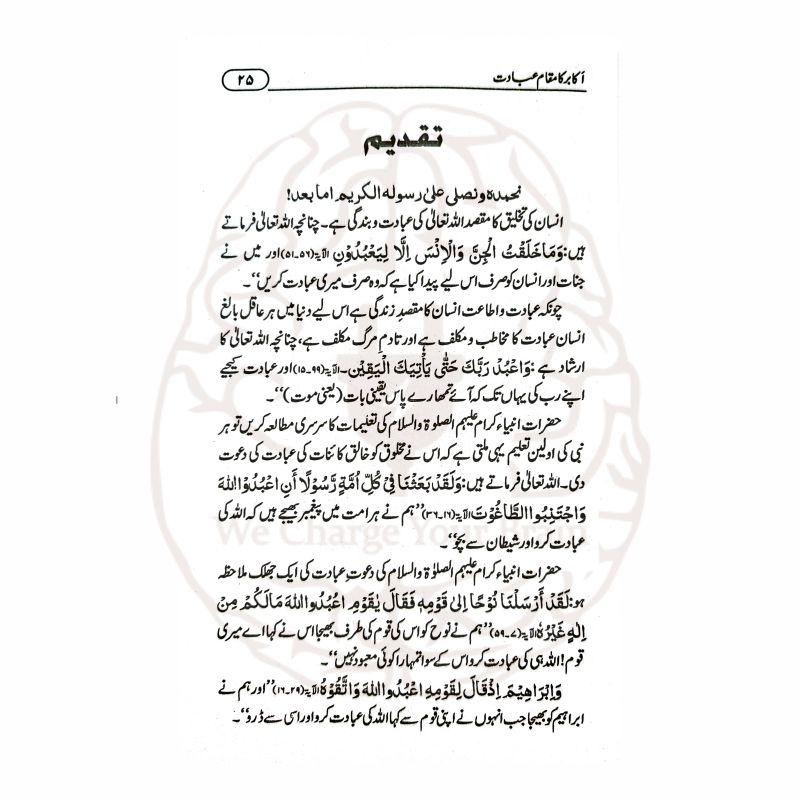 اکابر کا مقام عبادت ۲۵
تقدیم
نحمدہ ونصلی علیٰ رسولہ الکریم اما بعد!
انسان کی تخلیق کا مقصد اللہ تعالیٰ کی عبادت و بندگی ہے۔ چنانچہ اللہ تعالیٰ فرماتے
ہیں: وَمَا خَلَقْتُ الْجِنَّ وَالْاِنْسَ اِلَّا لِيَعْبُدُوْنِ الآیۃ (۵۶۔۵۱) اور میں نے
جنات اور انسان کو صرف اس لیے پیدا کیا ہے کہ وہ صرف میری عبادت کریں‘‘۔
چونکہ عبادت و اطاعت انسان کا مقصدِ زندگی ہے اس لیے دنیا میں ہر عاقل بالغ
انسان عبادت کا مخاطب و مکلف ہے اور تادمِ مرگ مکلف ہے، چنانچہ اللہ تعالیٰ کا
ارشاد ہے: وَاعْبُدْ رَبَّكَ حَتّٰى يَأْتِيَكَ الْيَقِيْن۔ الآیۃ (۹۹۔۱۵) اور عبادت کیجیے
اپنے رب کی یہاں تک کہ آئے تمہارے پاس یقینی بات (یعنی موت)‘‘۔
حضرات انبیاء کرام علیہم الصلوٰۃ والسلام کی تعلیمات کا سرسری مطالعہ کریں تو ہر
نبی کی اولین تعلیم یہی ملتی ہے کہ اس نے مخلوق کو خالق کائنات کی عبادت کی دعوت
دی۔ اللہ تعالیٰ فرماتے ہیں: وَلَقَدْ بَعَثْنَا فِىْ كُلِّ اُمَّةٍ رَّسُوْلًا أَنِ اعْبُدُوْا اللهَ
وَاجْتَنِبُوا الطَّاغُوْتَ الآیۃ (۱۶۔۳۶) ’’ہم نے ہر امت میں پیغمبر بھیجے ہیں کہ اللہ کی
عبادت کرو اور شیطان سے بچو‘‘۔
حضرات انبیاء کرام علیہم الصلوٰۃ والسلام کی دعوتِ عبادت کی ایک جھلک ملاحظہ
ہو: لَقَدْ أَرْسَلْنَا نُوْحًا اِلٰى قَوْمِهٖ فَقَالَ يٰقَوْمِ اعْبُدُوا اللهَ مَالَكُمْ مِنْ
اِلٰهٍ غَيْرُهٗ الآیۃ (۷۔۵۹) ’’ہم نے نوح کو اس کی قوم کی طرف بھیجا اس نے کہا اے میری
قوم! اللہ ہی کی عبادت کرو اس کے سوا تمہارا کوئی معبود نہیں‘‘۔
وَاِبْرَاهِيْمَ اِذْ قَالَ لِقَوْمِهِ اعْبُدُوا اللهَ وَاتَّقُوْهُ الآیۃ (۲۹۔۱۶) ’’اور ہم نے
ابراہیم کو بھیجا جب انہوں نے اپنی قوم سے کہا اللہ کی عبادت کرو اور اسی سے ڈرو‘‘۔
We Charge Your Brain